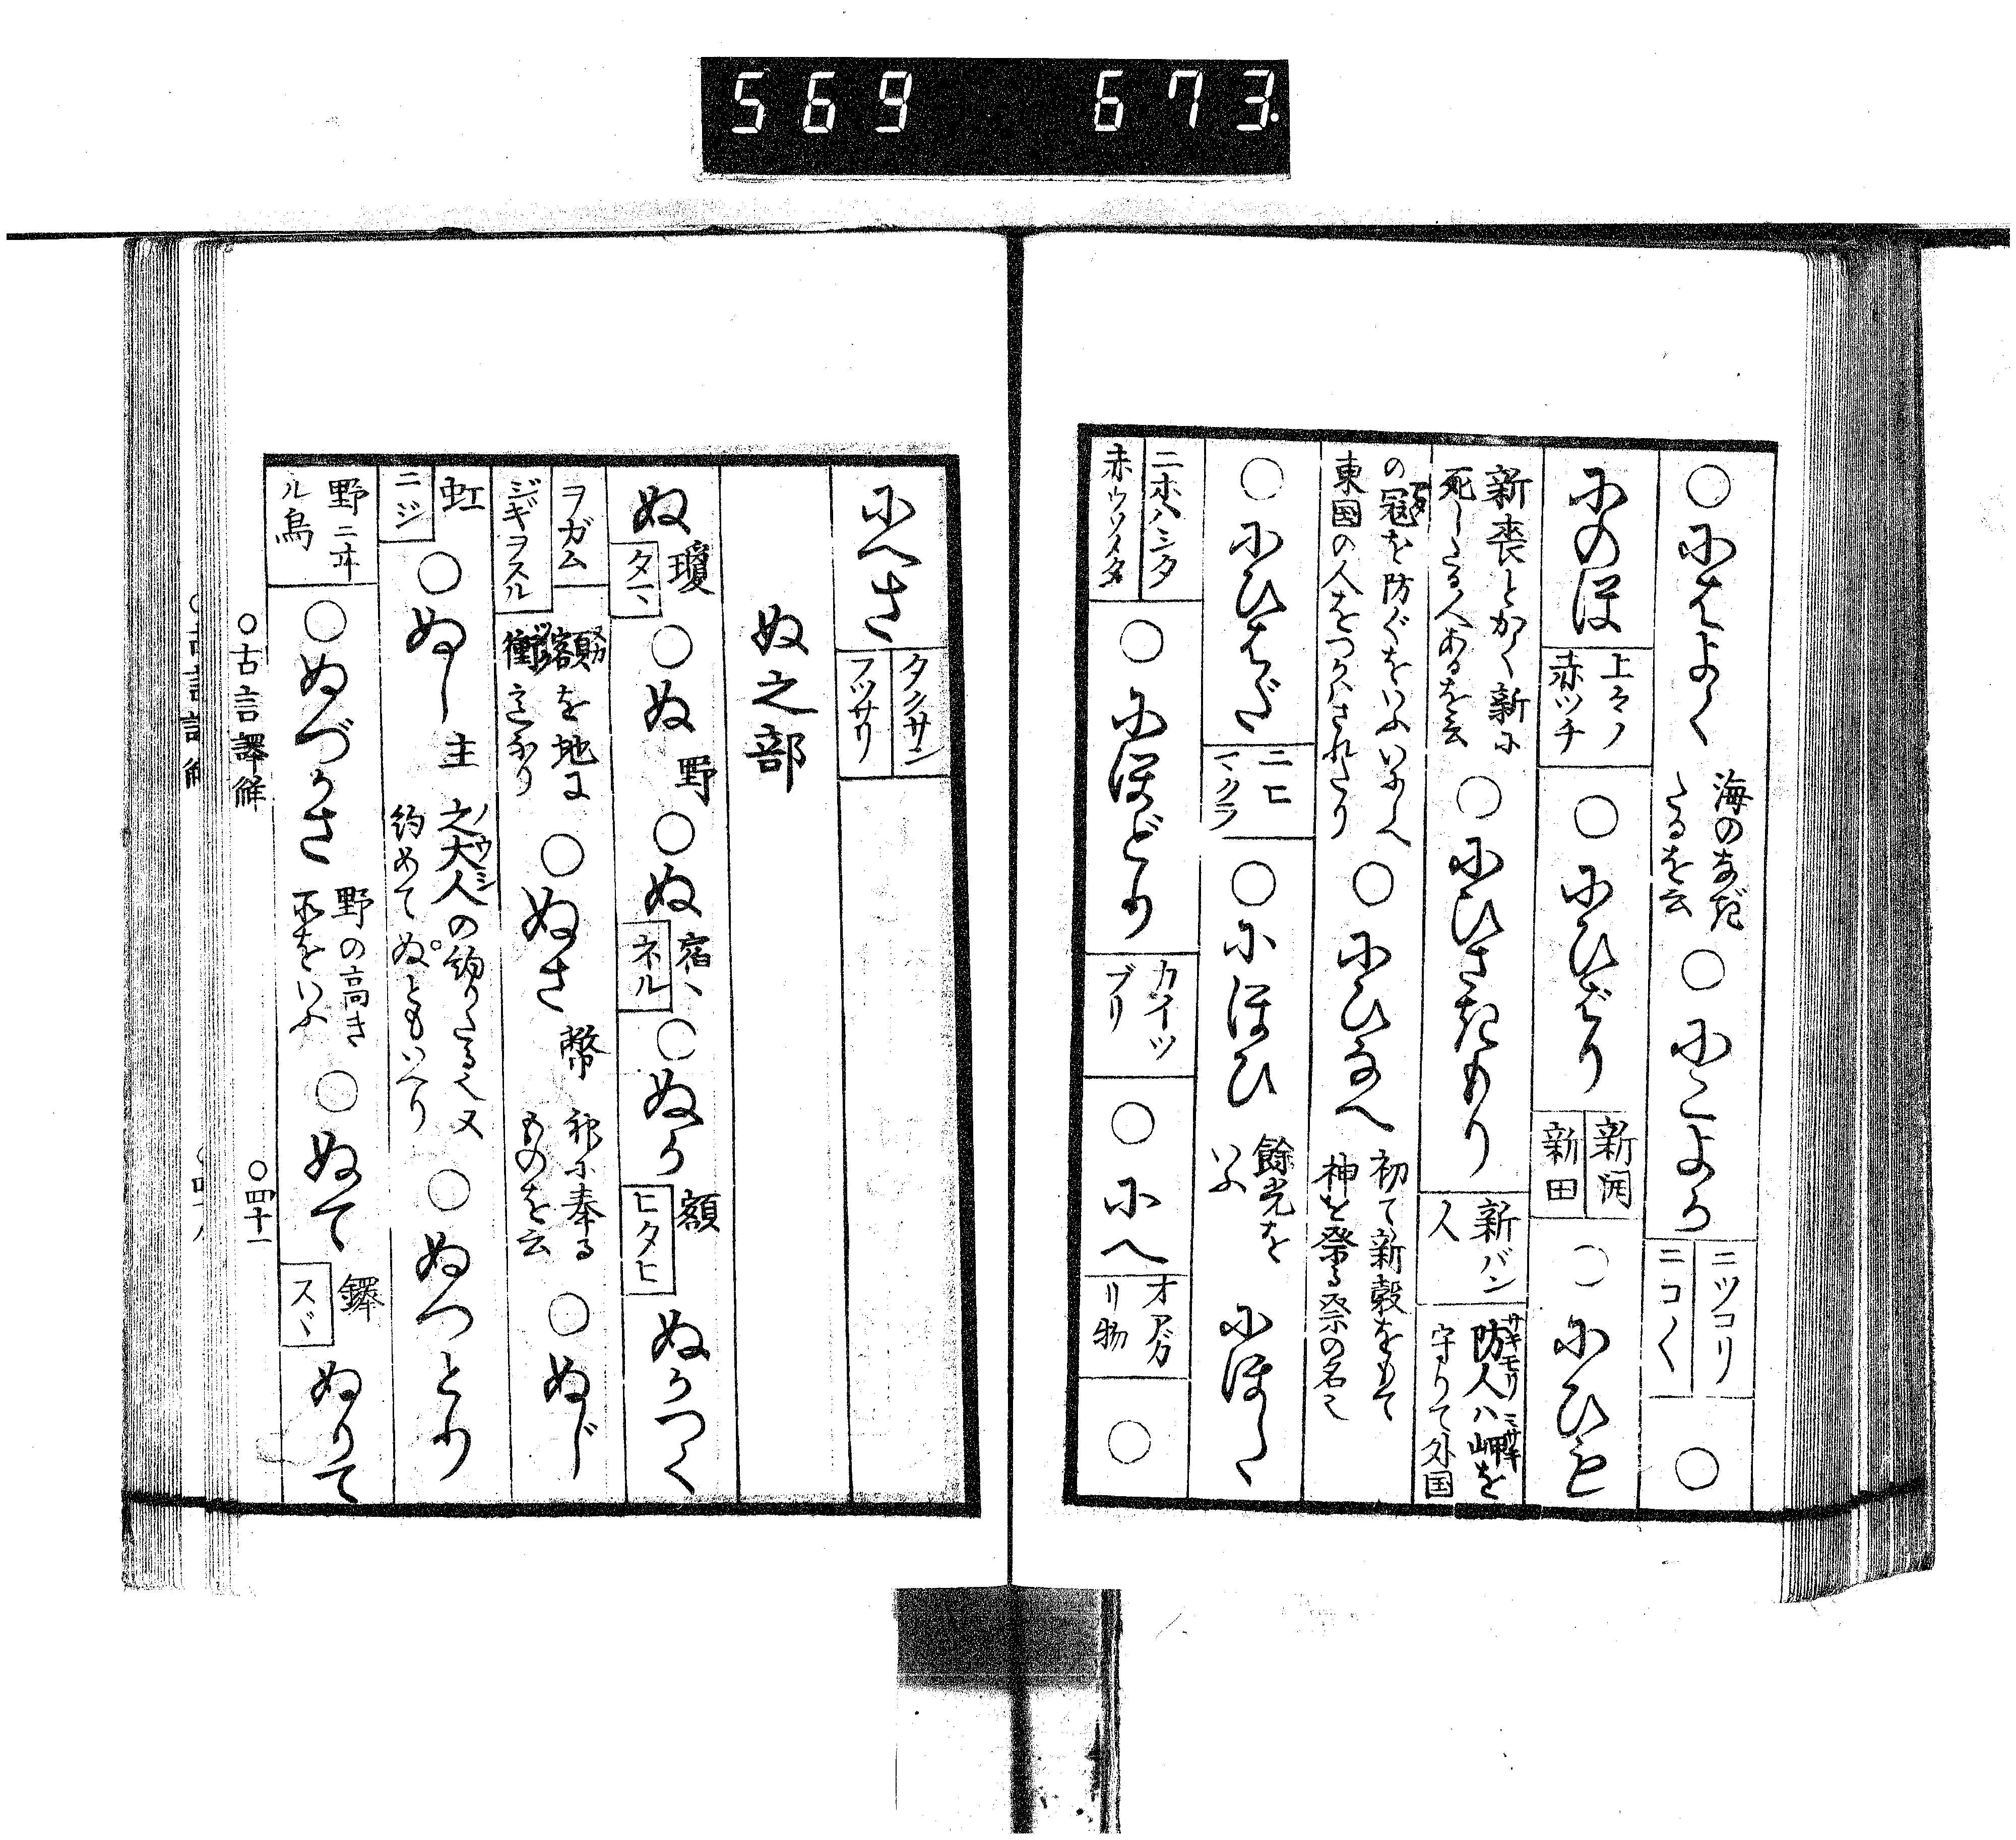 569 673.
○にはよく 海のなぎたるを云 ○にこよか ニツコリ ニコ〱 ○
にのほ 上ヘノ赤ツチ ○にひばり 新開 新田 ○にひも
新喪とかく新に死したる人あるを云 ○にひさきもり 新バン人 防人ハ岬を守りて外国
の冦を防ぐをいふいにしへ東国の人をつかはされたり ○にひなへ 初て新穀をもて神を祭る祭の名也
○にひはだ ニヒマクラ ○にほひ 餘光をいふ にほし
ニホハシタ 赤ウソメタ ○にほどり カイツブリ ○にへ オアガリ物 ○
にへさ タクサン フツサリ
ぬ之部
ぬ 瓊 タマ ○ぬ 野 ○ぬ 宿ヽ ネル ○ぬか 額 ヒタヒ ぬかつく
ヲガム ジギヲスル 額を地に衝也 ○ぬさ 幣 神に奉るものを云 ○ぬじ
虹 ニジ ○ぬし 主 之大人の約りたる也又約めてぬともいへり ○ぬつとり
野ニヰル鳥 ○ぬづかさ 野の高き所をいふ ○ぬて 鐸 スヾ ぬりて
○古言譯解 ○四十一